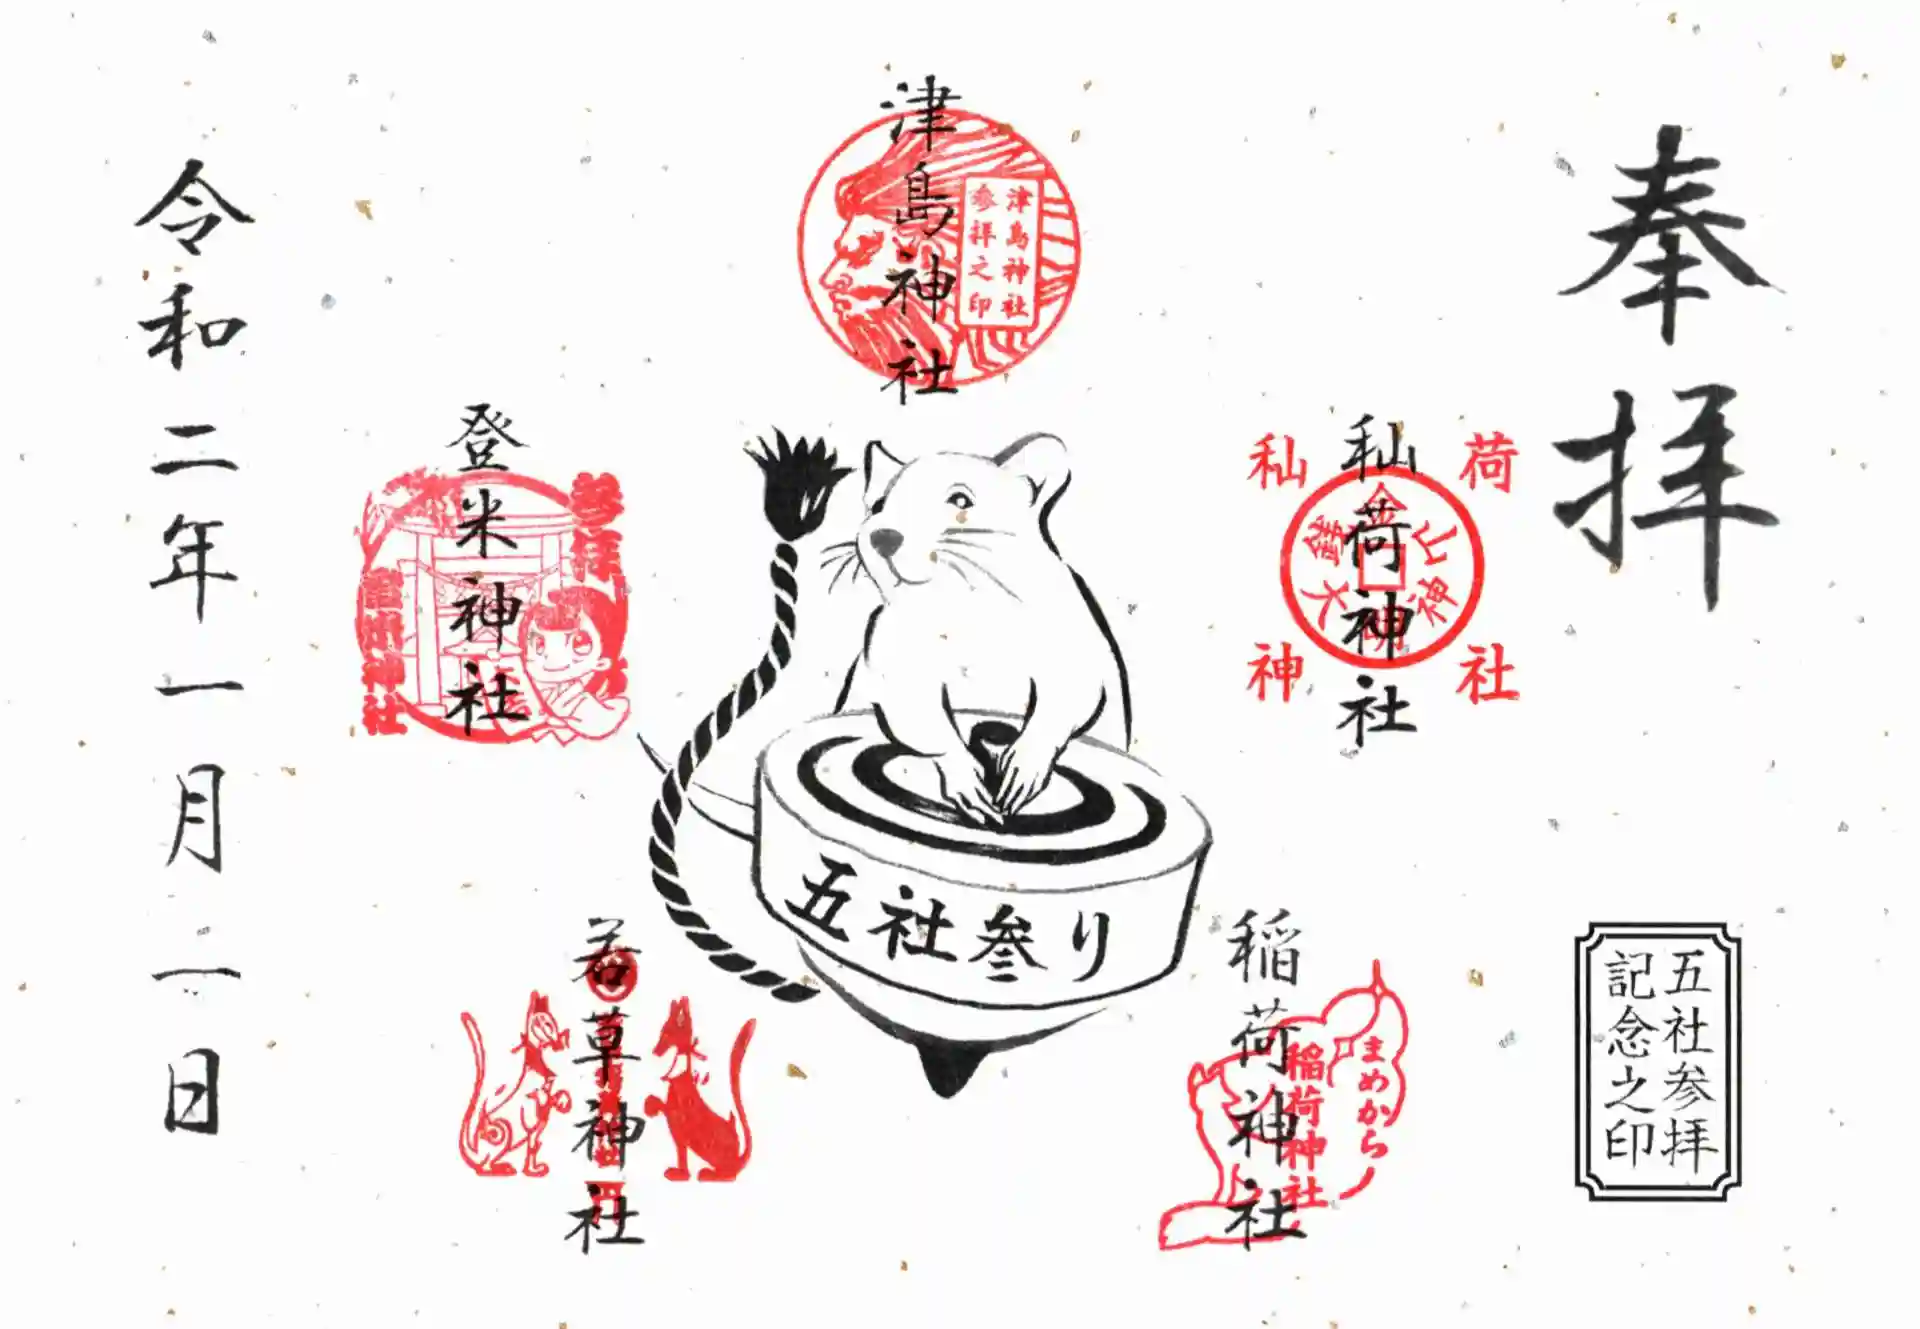 奉拝
五社参拝
記念之印
秈荷神社
秈荷神社
稲荷神社
まめから
稲荷神社
津島神社
津島神社
参拝之印
五社叁り
登米神社
参拝
登米神社
若草神社
令和二年一月二日